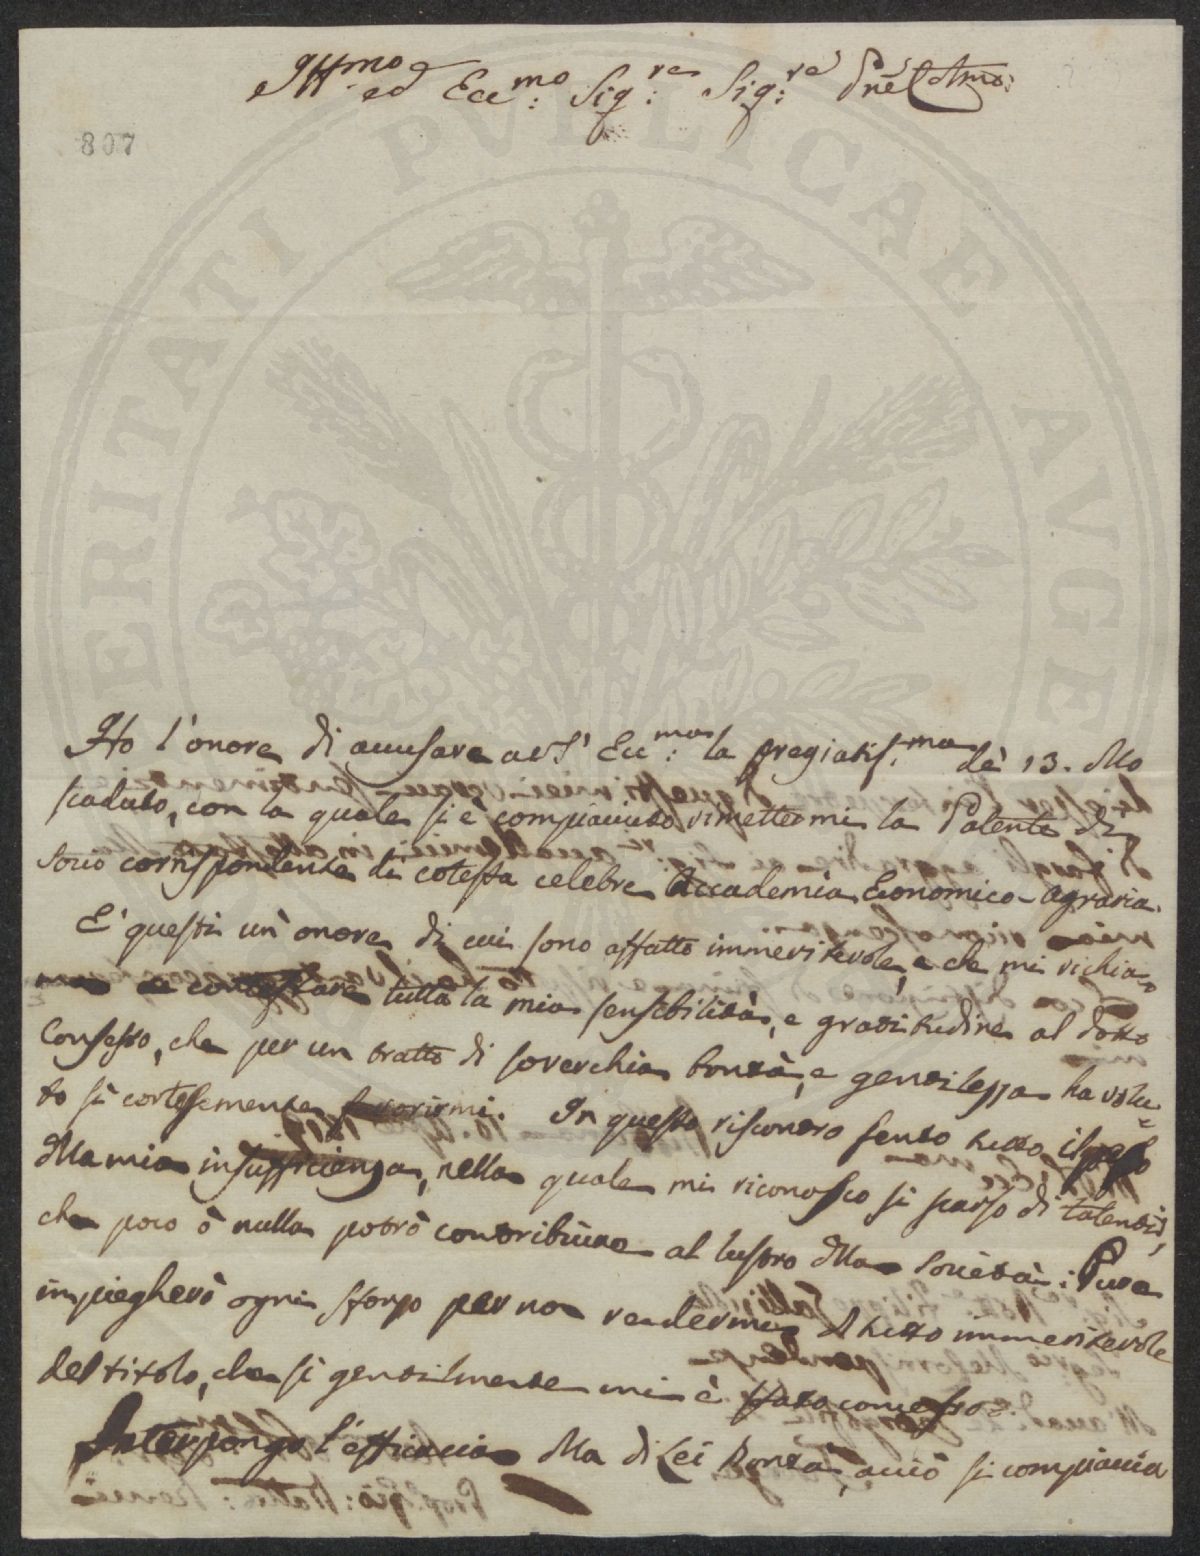 Ill.mo ed Ecc.mo Sig.re Sig.re Pne Colmo:
807
Ho l'onore di accusare a V.S. Ecc.ma la pregiatis.ma dè 13. Mo
scaduto, con la quale si è compiaciuto rimettermi la Patente di
Socio corrispondente di cotesta celebre Accademia Economico-agraria.
E' questi un' onore di cui sono affatto immeritevole, e che mi richia-
ma a contestare tutta la mia sensibilità, e gratitudine al dotto
Consesso, che per un tratto di soverchia bontà, e gentilezza ha volu-
to sì cortesemente favorirmi. In questo riscontro sento tutto il peso
della mia insufficienza, nella quale mi riconosco sì scarso di talenti,
che poco ò nulla potrò contribuire al lustro della Società: Pure
impiegherò ogni sforzo per non rendermi del tutto immeritevole
del titolo, che sì gentilmente mi è stato concesso.
Interpongo l'efficacia della di Lei bontà, acciò si compiaccia
PVBLICAE